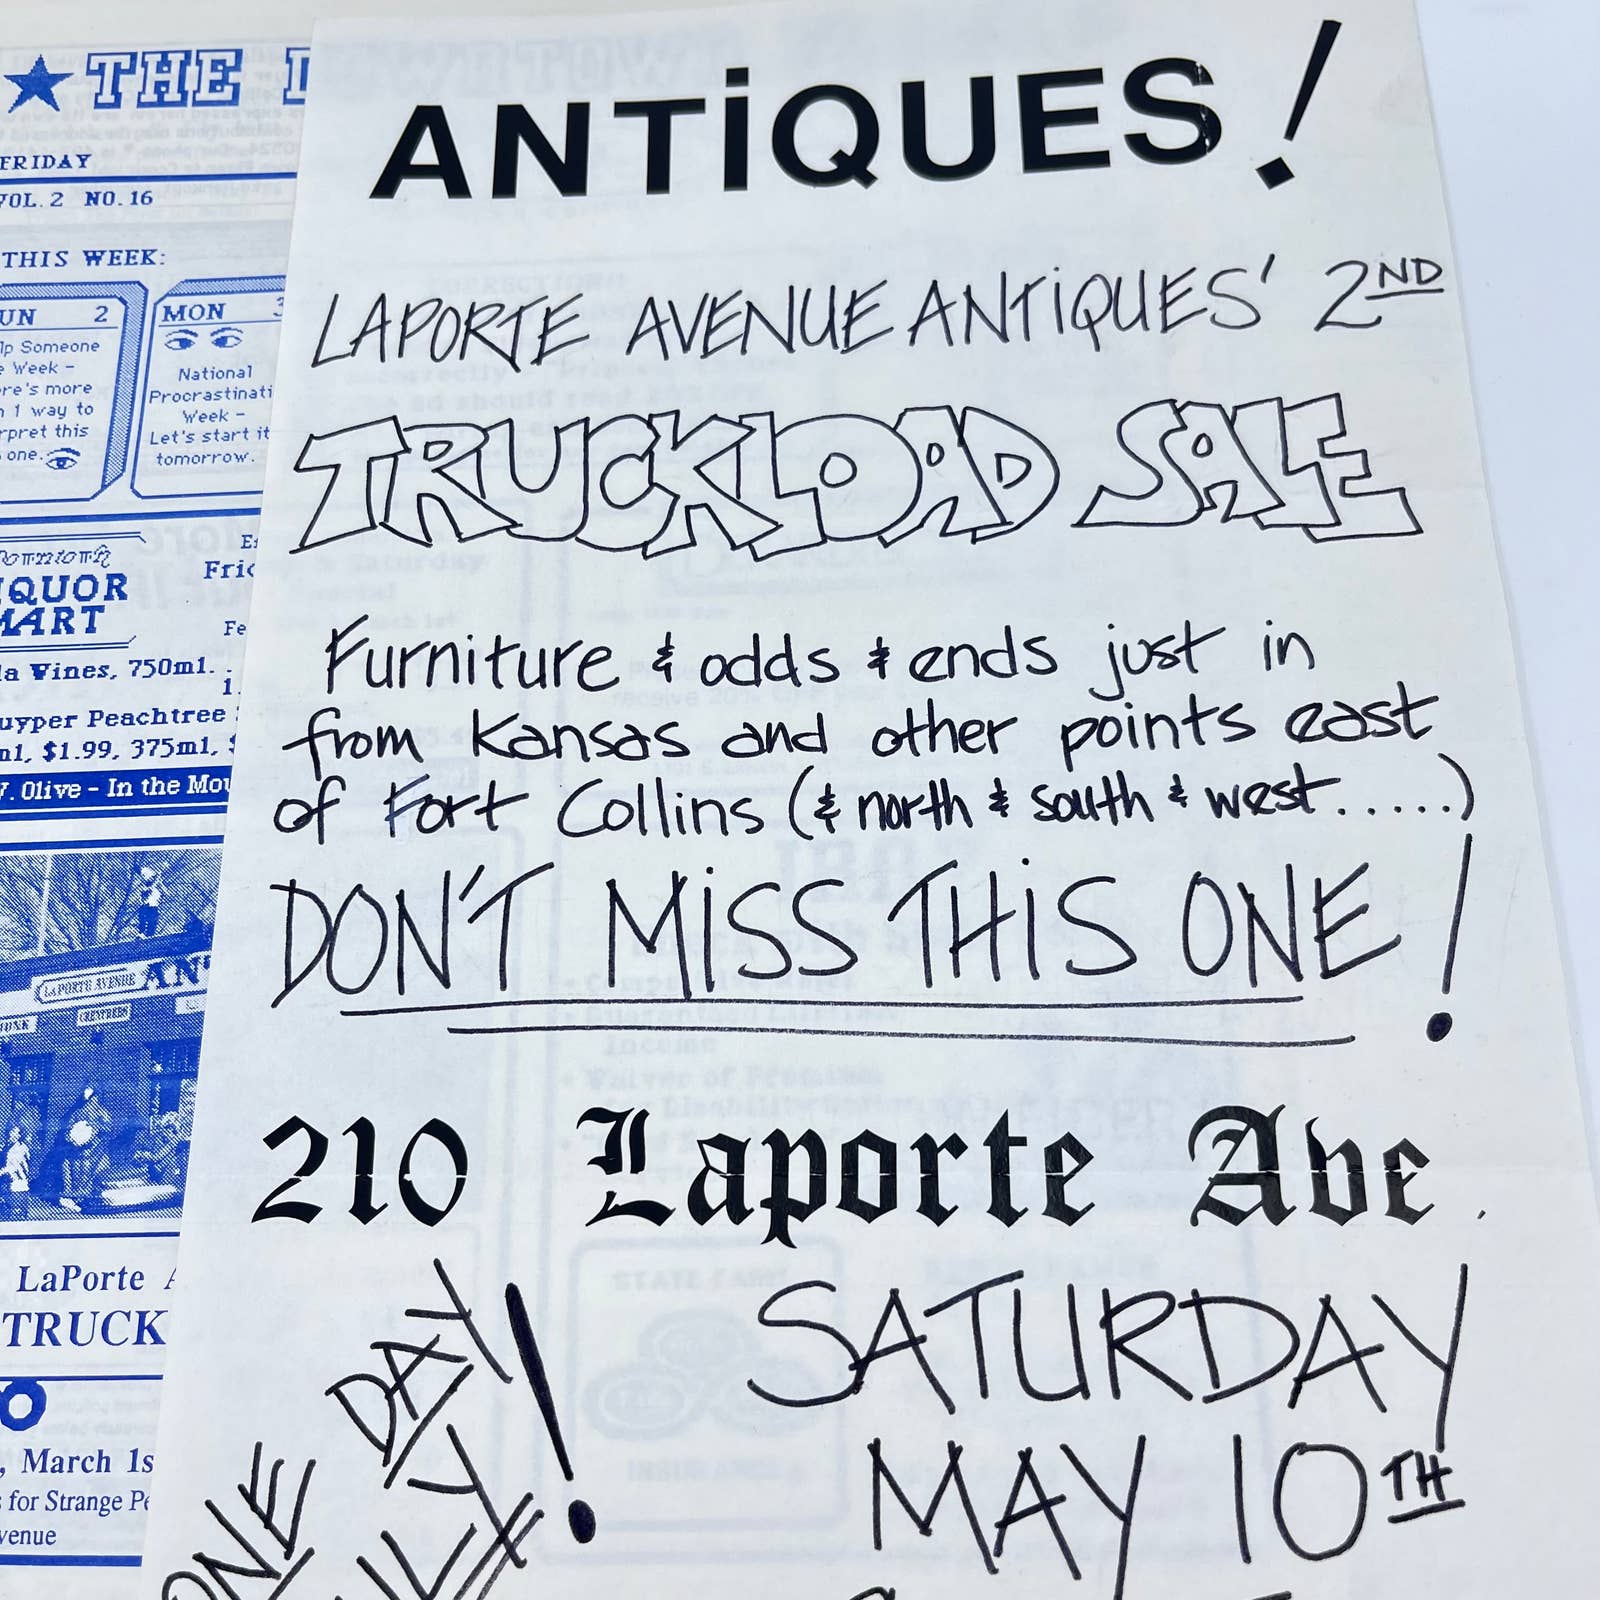 ANTiQUES!
LAPORTE AVENUE ANTiQUES' 2ND
TRUCKLOAD SALE
Furniture & odds & ends just in
from Kansas and other points east
of Fort Collins (& north & south & west.....)
DON'T MiSS THiS ONE!
210 Laporte Ave.
ONE DAY
ONLY!
SATURDAY
MAY 10TH
★ THE
FRIDAY
VOL. 2 NO. 16
THIS WEEK:
2
Someone
Week -
more
1 way to
this
one.
MON
National
Week -
Let's start it
tomorrow.
Downtown
LIQUOR
MART
Wines, 750ml.
Peachtree
$1.99, 375ml,
Olive - In the
LAPORTE AVENUE
LaPorte
TRUCK
March 1s
for Strange